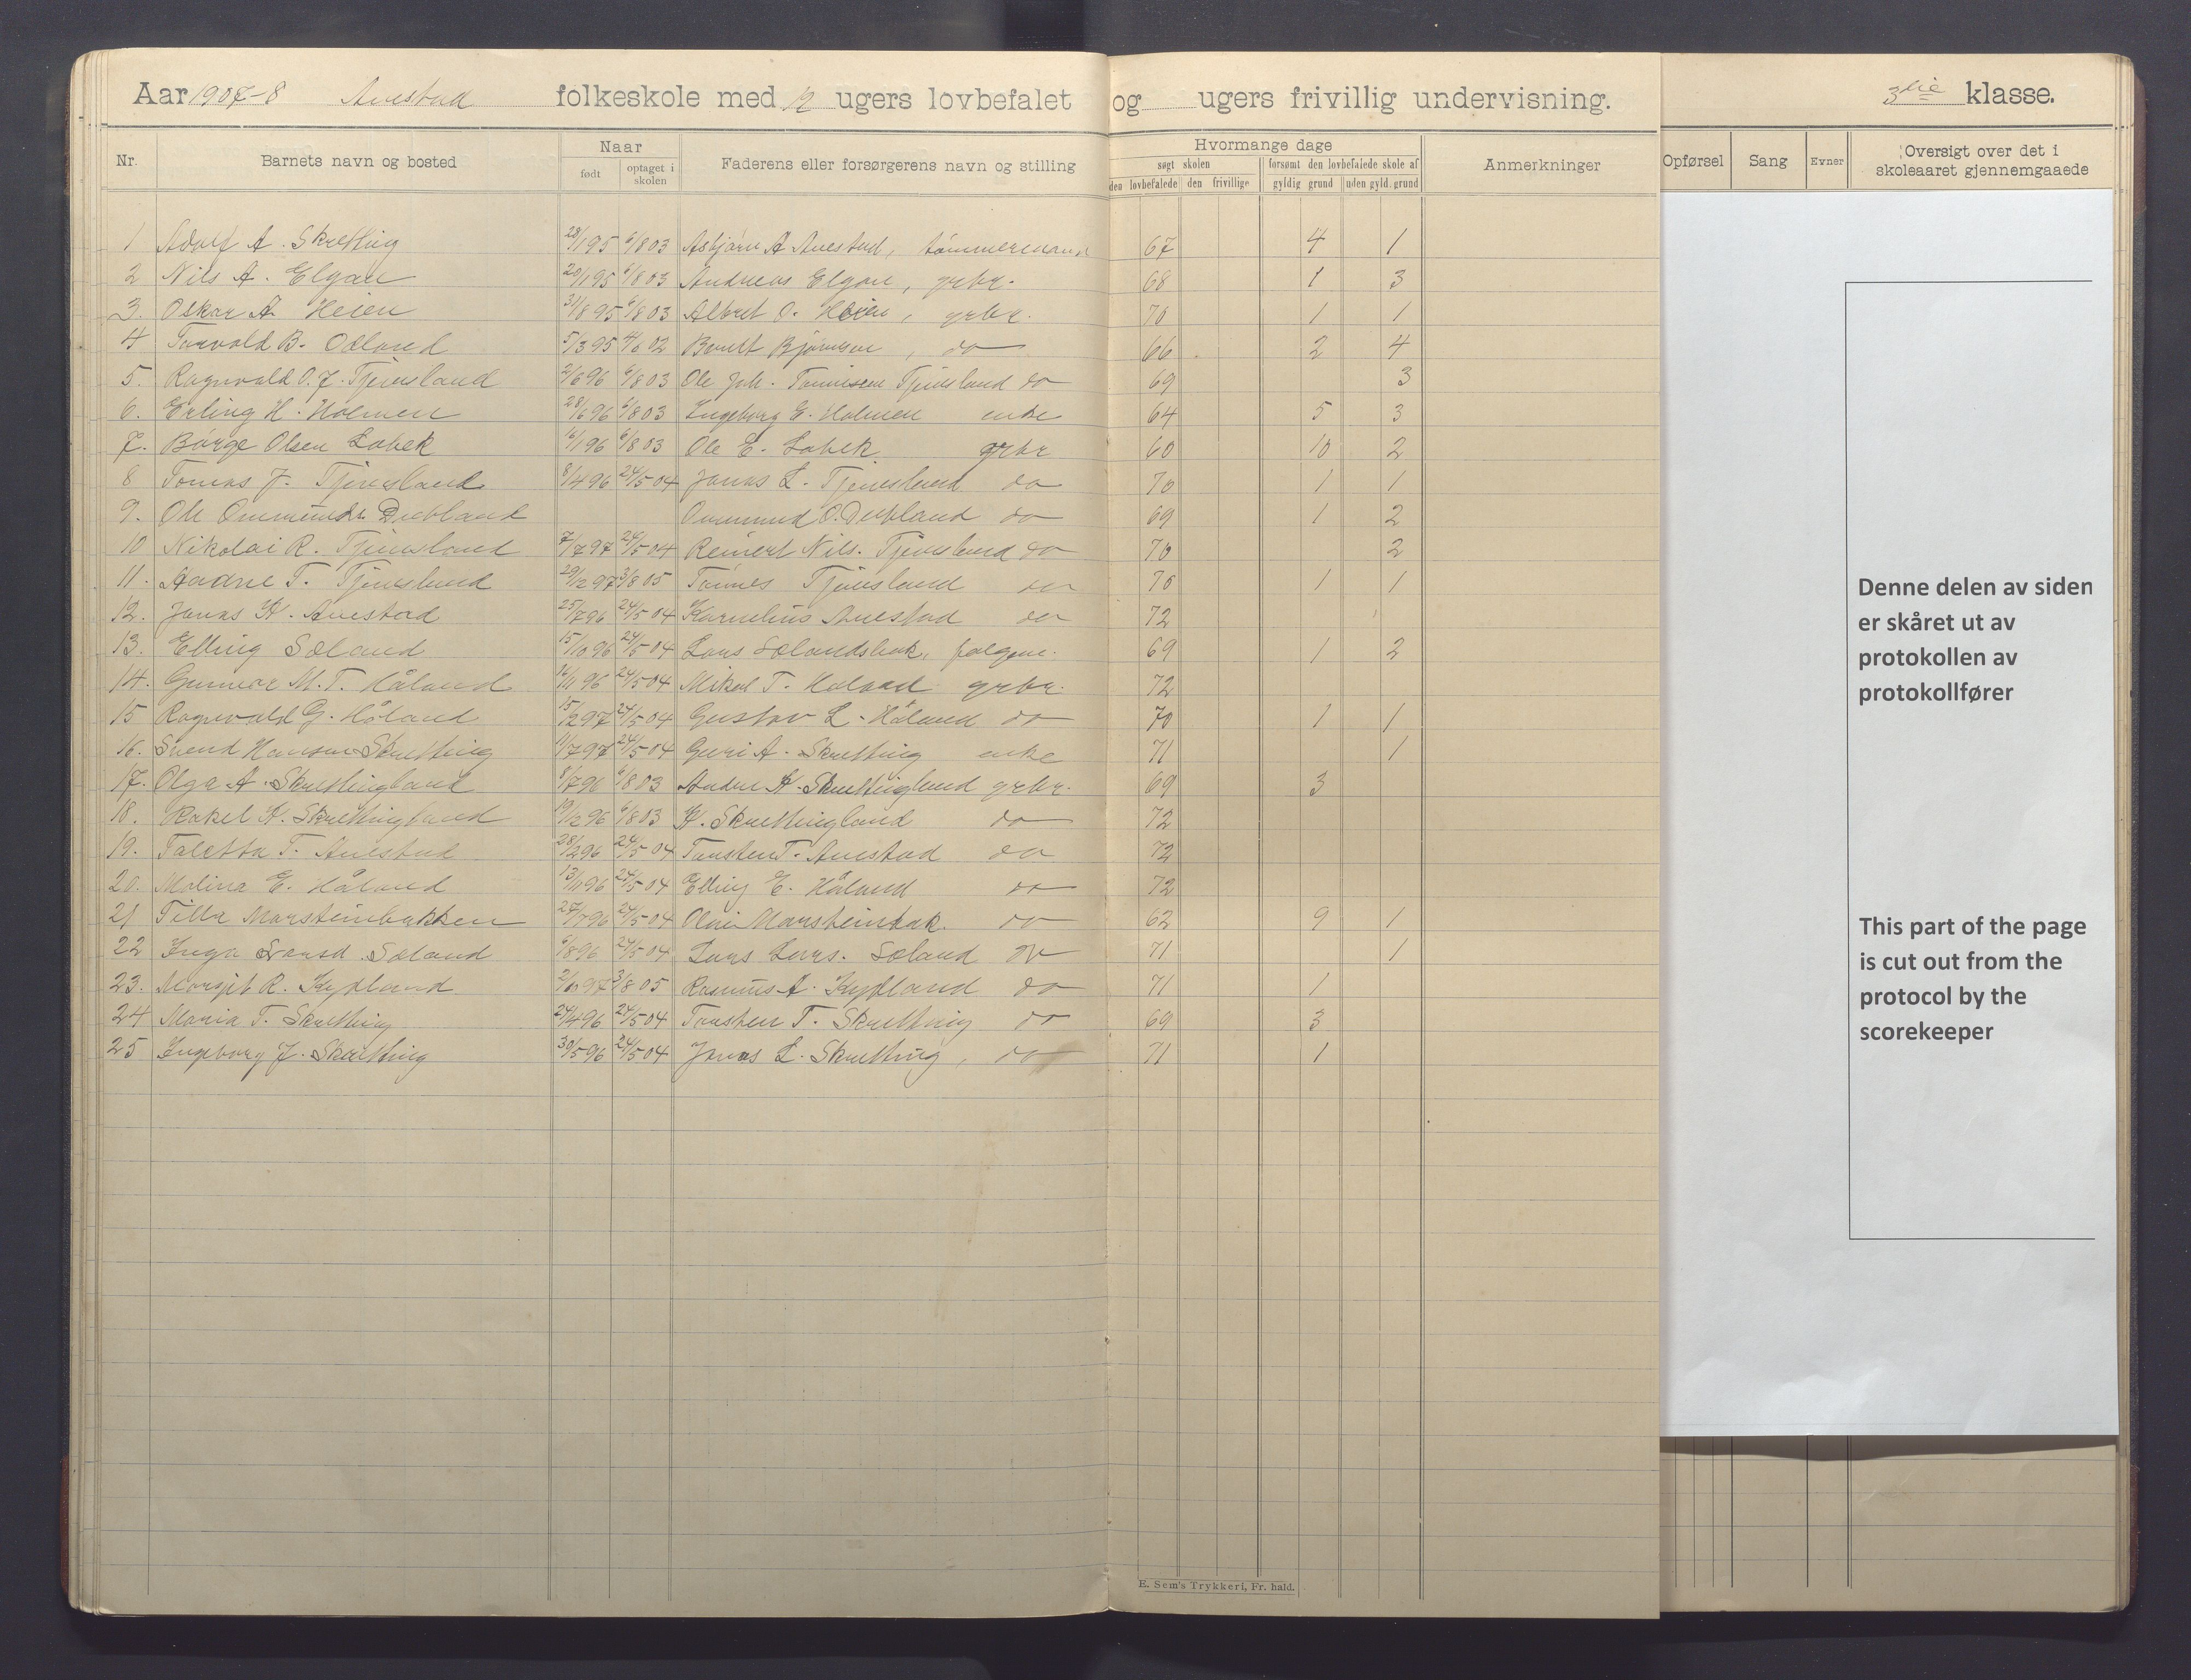 Aar 1907-8 Auestad folkeskole med 12 ugers lovbefalet og ugers frivillig undervisning. 3die klasse.
Nr. Barnets navn og bosted Naar Faderens eller forsørgerens navn og stilling Hvormange dage Anmerkninger Opførsel Sang Evner Oversigt over det i skoleaaret gjennemgaaede
født optaget i skolen søgt skolen forsømt den lovbefalede skole af
den lovbefalede den frivillige gyldig grund uden gyld. grund
1 Adolf A. Skretting 28/1 95 6/8 03 Asbjørn A Auestad, tømmermand 67 4 1
2 Nils A. Elgan 20/1 95 6/8 03 Andreas Elgan, grbr. 68 1 3
3. Oskar A. Heien 31/8 95 6/8 03 Albret O. Heien, grbr. 70 1 1
4 Torvald B. Odland 5/3 95 4/6 02 Berndt Bjørnsen, do 66 2 4
5. Ragnvald O. J. Tjensland 2/6 96 6/8 03 Ole Joh. Tønnesen Tjensland do 69 3
6. Erling H. Holmen 28/6 96 6/8 03 Ingeborg E. Holmen enke 64 5 3
7. Børge Olsen Lobek 16/1 96 6/8 03 Ole E. Lobek grbr 60 10 2
8 Tomas J. Tjensland 8/4 96 24/5 04 Jonas L. Tjensland do 70 1 1
9. Ole Ommunds. Dubland Ommund O. Dubland do 69 1 2
10 Nikolai R. Tjensland 7/7 97 24/5 04 Reinert Nils. Tjensland do 70 2
11. Aadne T. Tjensland 29/12 97 3/8 05 Tønnes Tjensland do 70 1 1
12. Jonas K. Auestad 25/7 96 24/5 04 Kornelius Auestad do 72
13. Elling Sæland 15/10 96 24/5 04 Lars Sælandsbak, 69 1 2
14. Gunnar M. T. Håland 16/11 96 24/5 04 Mikal T. Håland grbr. 72
15 Ragnvald G. Håland 15/2 97 24/5 04 Gustav L. Håland do 70 1 1
16. Svend Hansen Skretting 11/7 97 24/5 04 Guri A. Skretting enke 71 1
17. Olga A. Skrettingland 8/7 96 6/8 03 Andre K. Skrettingland grbr. 69 3
18. Rakel K. Skrettingland 19/12 96 6/8 03 K. Skrettingland do 72
19. Taletta T. Auestad 28/2 96 24/5 04 Torsten T. Auestad do 72
20. Malina E. Håland 13/11 96 24/5 04 Elling E. Håland do 72
21 Tilla Marsteinbakken 27/7 96 24/5 04 Olai Marsteinbak. do 62 9 1
22 Inga Larsd. Sæland 6/8 96 24/5 04 Lars Lars. Sæland do 71 1
23. Marsjit R. Kydland 2/10 97 3/8 05 Rasmus A. Kydland do 71 1
24 Maria T. Skretting 24/4 96 24/5 04 Torsten T. Skretting do 69 3
25 Ingeborg J. Skretting 30/5 96 24/5 04 Jonas L. Skretting, do 71 1
Denne delen av siden
er skåret ut av
protokollen av
protokollfører
This part of the page
is cut out from the
protocol by the
scorekeeper
E. Sem's Trykkeri, Fr. hald.